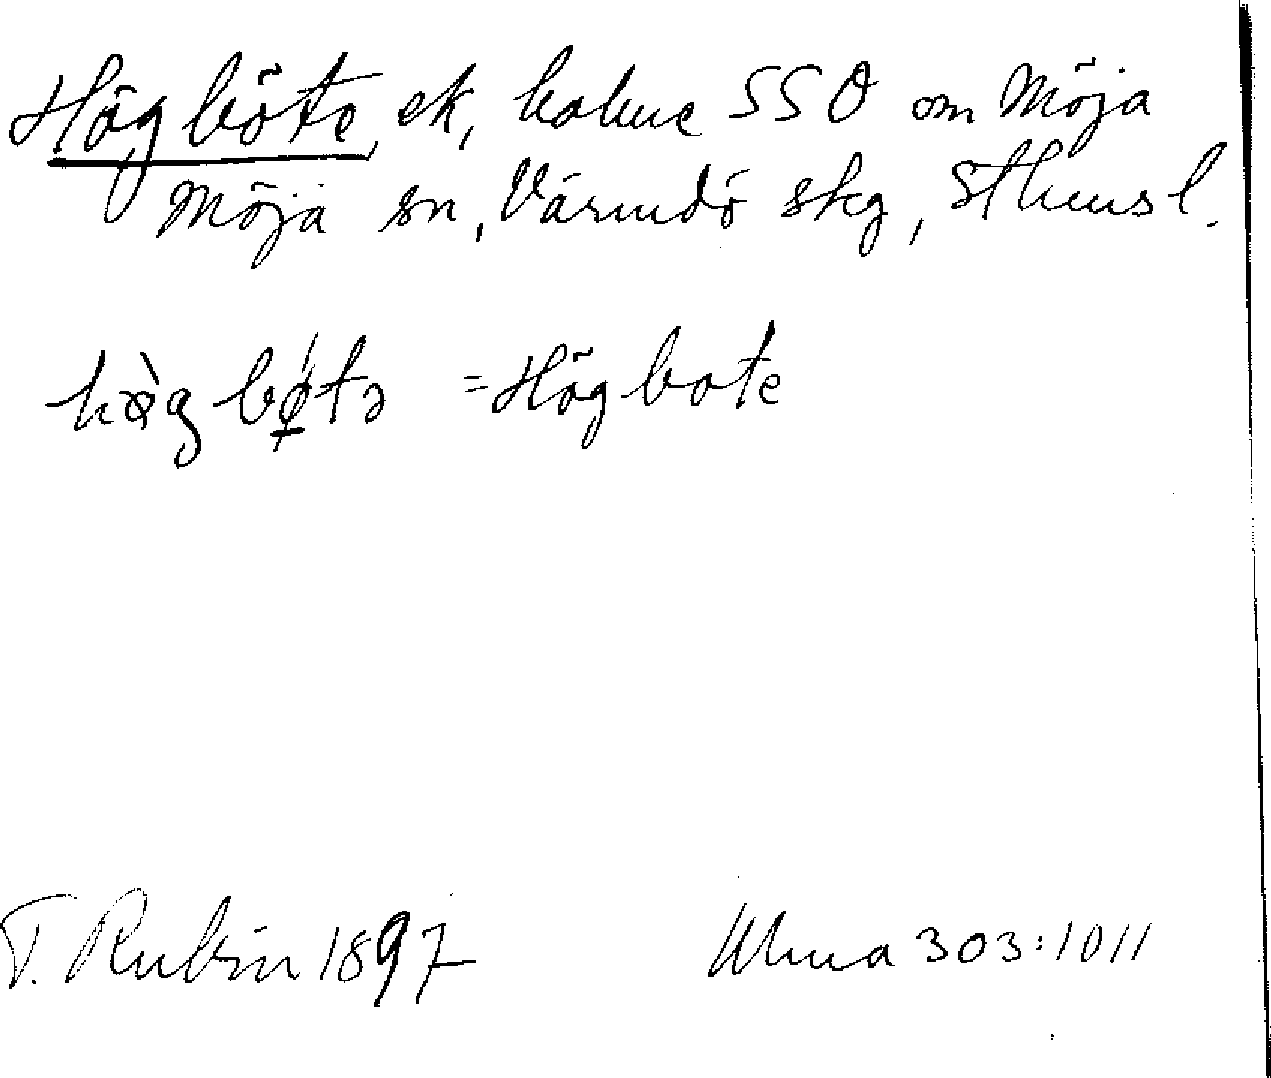 Högböte, ek, holme SSO om Möja
Möja sn, Värmdö skg, Sthmsl.
hø̀g bǿtə = Högbote
T. Rubin 1897 Ulma 303:1011